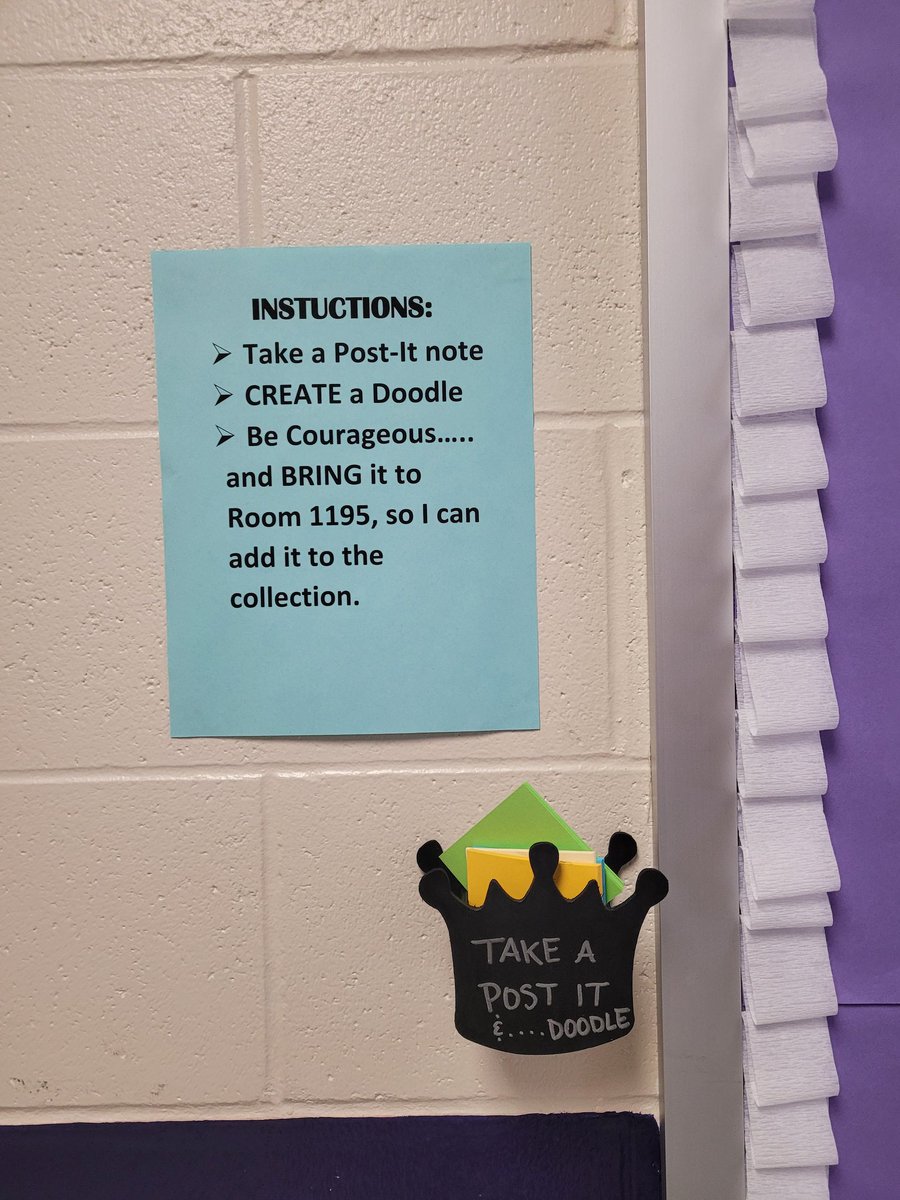 INSTUCTIONS:
➢ Take a Post-It note
➢ CREATE a Doodle
➢ Be Courageous.....
and BRING it to
Room 1195, so I can
add it to the
collection.
TAKE A
POST IT
&....DOODLE